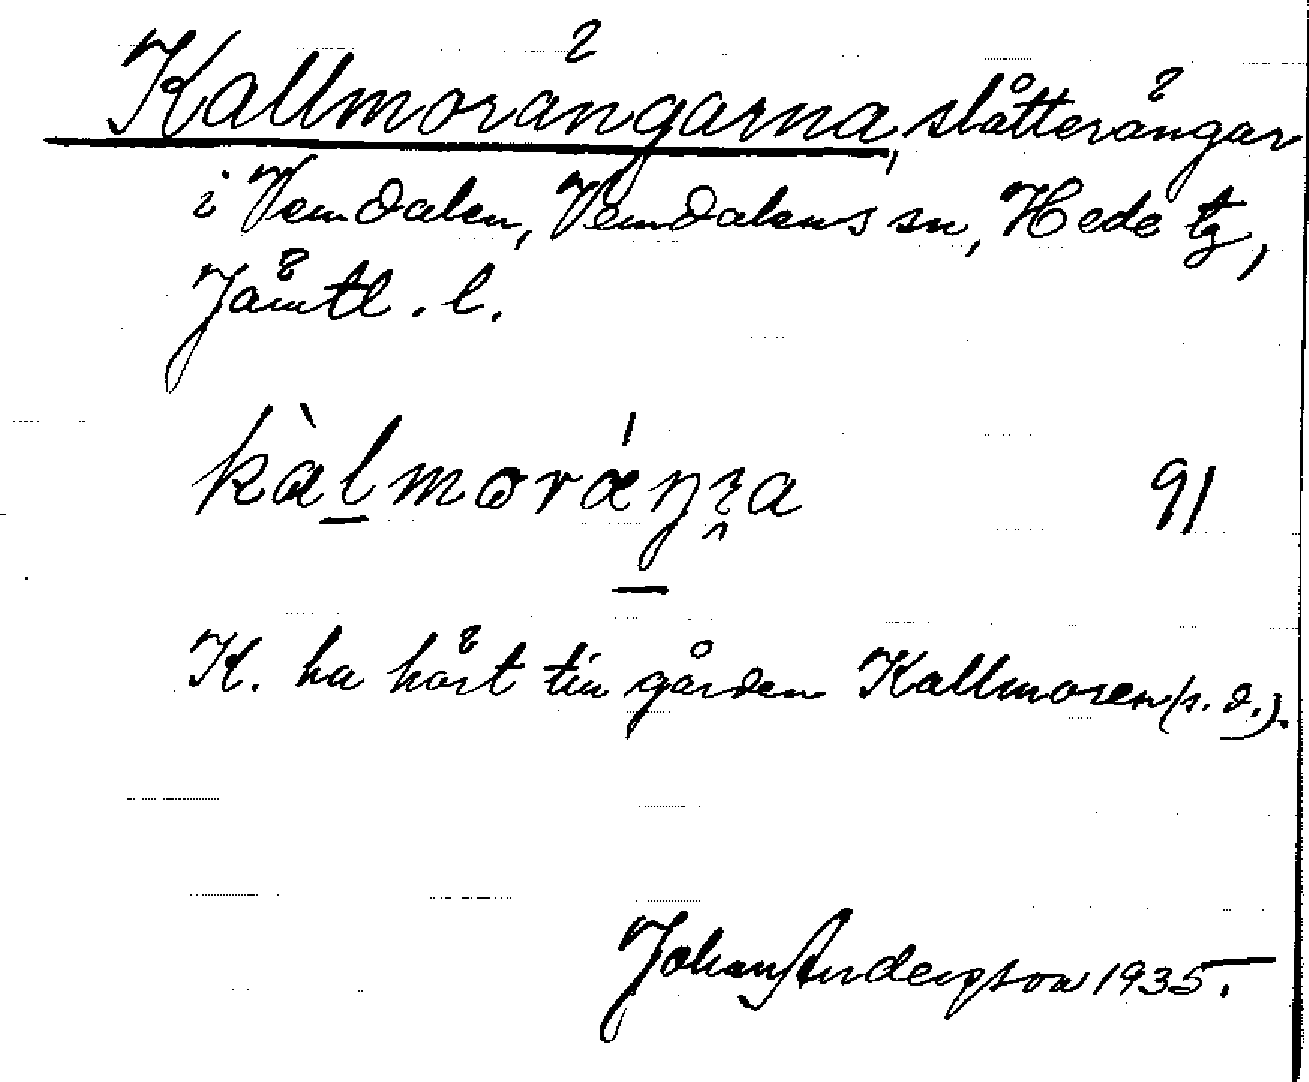 Kallmorängarna, slåtterängar
i Vemdalen, Vemdalens sn, Hede tg,
Jämtl. l.
kàlmoráŋɿa 91
K. ha hört till gården Kallmoren (s. d.).
Johan Andersson 1935.